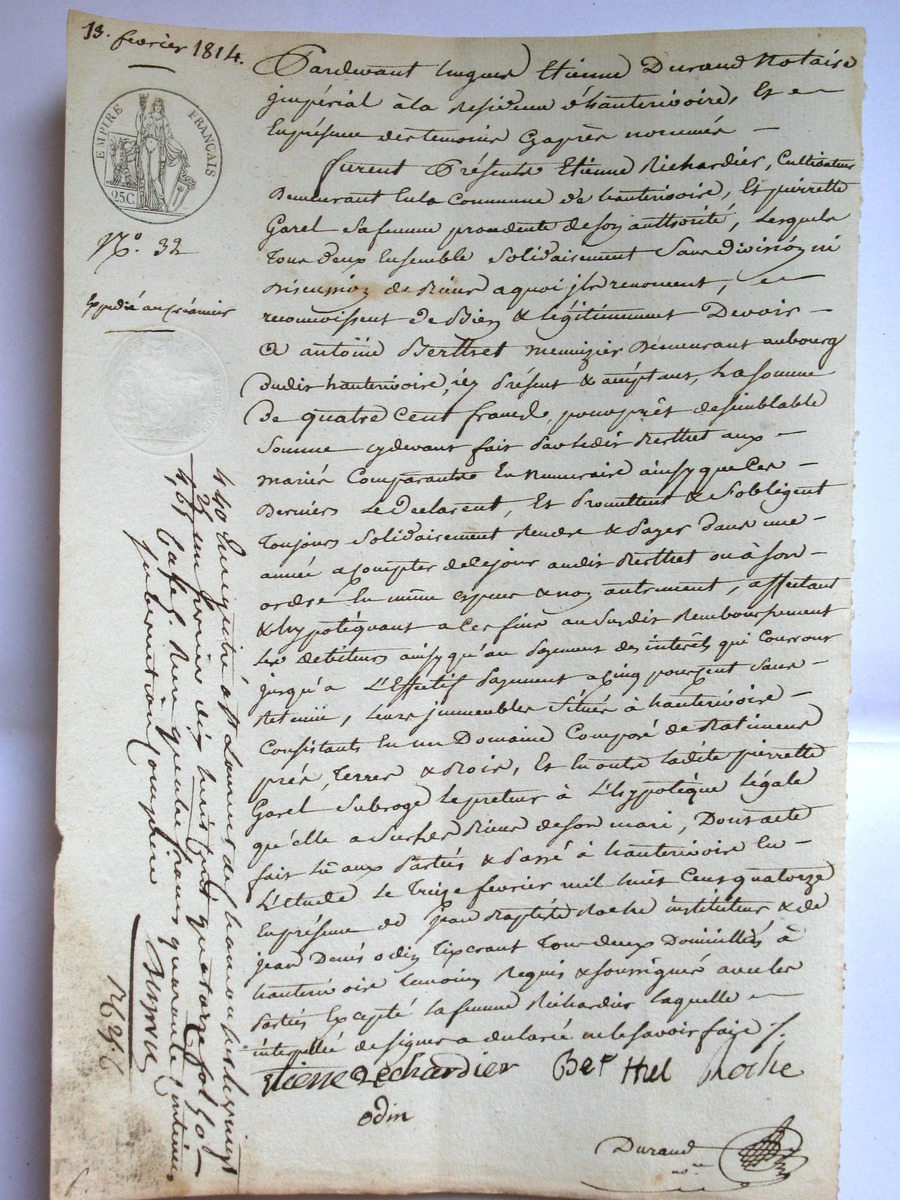 13. fevrier 1814.
EMPIRE FRANÇAIS
25C
N.º 32
Expédié au créancier
Pardevant hugues Etienne Durand Notaire
jmpérial à la Residence d'hauterivoire, Et en
la présence des temoins Cyaprès nommés
furent Présents Etienne Richardier, Cultivateur
Demeurant En la Commune de hauterivoire, Et pierrette
Garel Sa femme procedente de son authorité, Lesquels
Tous deux Ensemble Solidairement Sans division ni
Discussion de Biens a quoi jls renoncent, 
reconnoissent de Bien & Légitimement Devoir
a antoine Berthet menuizier Demeurant au bourg
dudit hauterivoire, icy présent & acceptant, La Somme
De quatre Cent francs, pour prêt de semblable
Somme cydevant fait Par Ledit Berthet aux
mariés Comparants En Numeraire ainsy que Ces
Derniers Le Declarent, Et Promettent & S'oblegent
Toujours Solidairement Rendre & Payer Dans une
année a Compter de Ce jour audit Berthet ou à Son
ordre En même espece & non autrement, affectant
& hypotéquant a Ces fins au Susdit Remboursement
Les debiteurs ainsy qu'au Payement des interêts qui Courront
jusqu'a L'Effectif Payement a Cinq pour Cent Sans
Retenue, Leurs jmmeubles Situés à hauterivoire
Consistants En un Domaine Composé de Batiments
prés, Terres & Bois, Et En outre Ladite pierrette
Garel Subroge Le preteur à L'hypotèque légale
qu'elle a Sur Les Biens de Son mari, Dont acte
fait Lû aux Parties & Passé à hauterivoire En
L'étude Le Treize fevrier mil huit Cent quatorze
En présence de Jean Baptiste Roche instituteur & de
Jean Denis odin Tixerant Tous deux Domiciliés à
hauterivoire temoins Requis & Soussignés avec Les
Parties Excepté La femme Richardier Laquelle
interpellée de signer a declaré ne le Savoir faire
Etiene Richardier Ber thet Roche
odin
Durand
n.re
Enregistré à St Laurent de chamousset Le vingt
un fevrier dix huit cent quatorze fol 50